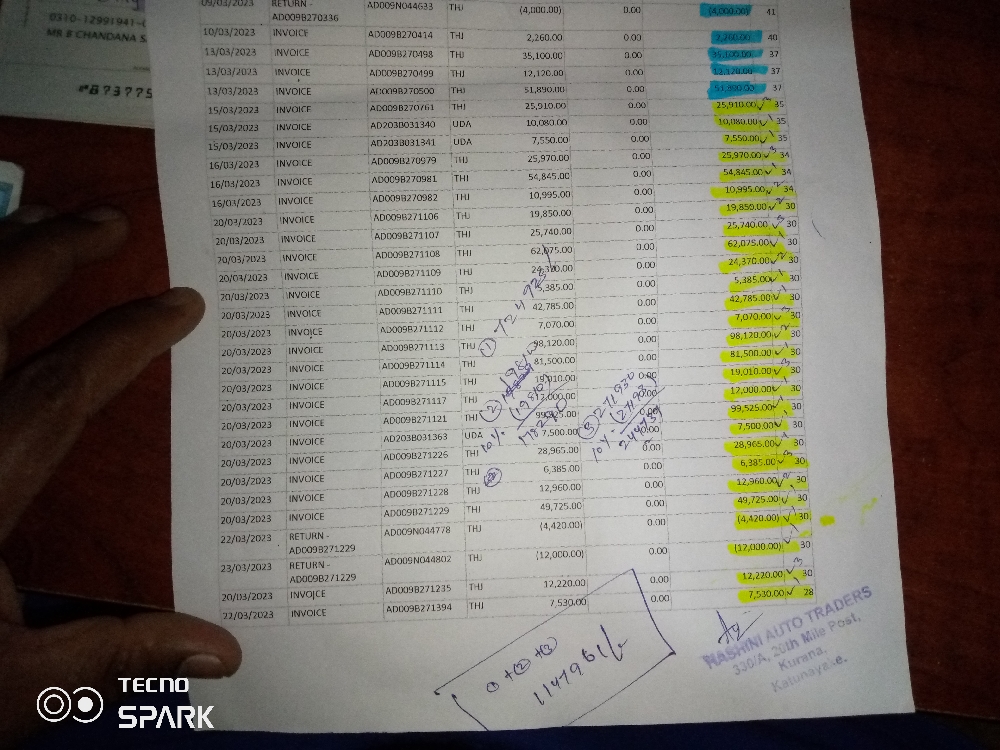 0310-12991941-
MR B CHANDANA S
09/03/2023 RETURN - AD009B270336 AD009N044633 THJ (4,000.00) 0.00 (4,000.00) 41
10/03/2023 INVOICE AD009B270414 THJ 2,260.00 0.00 2,260.00 40
13/03/2023 INVOICE AD009B270498 THJ 35,100.00 0.00 35,100.00 37
13/03/2023 INVOICE AD009B270499 THJ 12,120.00 0.00 12,120.00 37
13/03/2023 INVOICE AD009B270500 THJ 51,890.00 0.00 51,890.00 37
15/03/2023 INVOICE AD009B270761 THJ 25,910.00 0.00 25,910.00 35
15/03/2023 INVOICE AD203B031340 UDA 10,080.00 0.00 10,080.00 35
15/03/2023 INVOICE AD203B031341 UDA 7,550.00 0.00 7,550.00 35
16/03/2023 INVOICE AD009B270979 THJ 25,970.00 0.00 25,970.00 34
16/03/2023 INVOICE AD009B270981 THJ 54,845.00 0.00 54,845.00 34
16/03/2023 INVOICE AD009B270982 THJ 10,995.00 0.00 10,995.00 34
20/03/2023 INVOICE AD009B271106 THJ 19,850.00 0.00 19,850.00 30
20/03/2023 INVOICE AD009B271107 THJ 25,740.00 0.00 25,740.00 30
20/03/2023 INVOICE AD009B271108 THJ 62,075.00 0.00 62,075.00 30
20/03/2023 INVOICE AD009B271109 THJ 24,370.00 0.00 24,370.00 30
20/03/2023 INVOICE AD009B271110 THJ 5,385.00 0.00 5,385.00 30
20/03/2023 INVOICE AD009B271111 THJ 42,785.00 0.00 42,785.00 30
20/03/2023 INVOICE AD009B271112 THJ 7,070.00 0.00 7,070.00 30
20/03/2023 INVOICE AD009B271113 THJ 98,120.00 0.00 98,120.00 30
20/03/2023 INVOICE AD009B271114 THJ 81,500.00 0.00 81,500.00 30
20/03/2023 INVOICE AD009B271115 THJ 19,010.00 0.00 19,010.00 30
20/03/2023 INVOICE AD009B271117 THJ 12,000.00 0.00 12,000.00 30
20/03/2023 INVOICE AD009B271121 THJ 99,525.00 0.00 99,525.00 30
20/03/2023 INVOICE AD203B031363 UDA 7,500.00 0.00 7,500.00 30
20/03/2023 INVOICE AD009B271226 THJ 28,965.00 0.00 28,965.00 30
20/03/2023 INVOICE AD009B271227 THJ 6,385.00 0.00 6,385.00 30
20/03/2023 INVOICE AD009B271228 THJ 12,960.00 0.00 12,960.00 30
20/03/2023 INVOICE AD009B271229 THJ 49,725.00 0.00 49,725.00 30
22/03/2023 RETURN - AD009B271229 AD009N044778 THJ (4,420.00) 0.00 (4,420.00) 30
23/03/2023 RETURN - AD009B271229 AD009N044802 THJ (12,000.00) 0.00 (12,000.00) 30
20/03/2023 INVOICE AD009B271235 THJ 12,220.00 0.00 12,220.00 30
22/03/2023 INVOICE AD009B271394 THJ 7,530.00 0.00 7,530.00 28
① + ② + ③
1147961/-
NASHINI AUTO TRADERS
330/A, 20th Mile Post,
Kurana,
Katunayake.
TECNO
SPARK